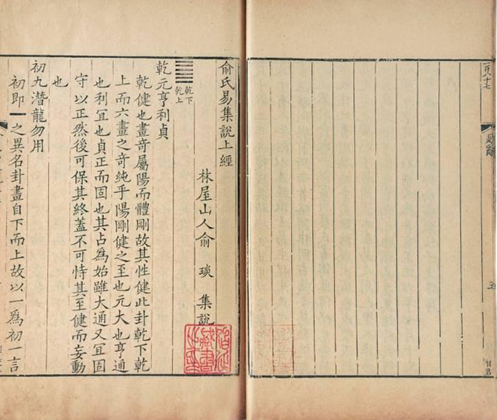 俞氏易集說上經
林屋山人俞琰集說
乾下
乾上
乾元亨利貞
乾健也畫之奇屬陽而體剛故其性健此卦乾下乾
上而六畫之奇純乎陽剛健之至也元大也亨通
也利宜也貞正而固也其占為始雖大通又宜固
守以正然後可保其終蓋不可恃其至健而妄動
也
初九潛龍勿用
初即一之異名卦畫自下而上故以一為初一言